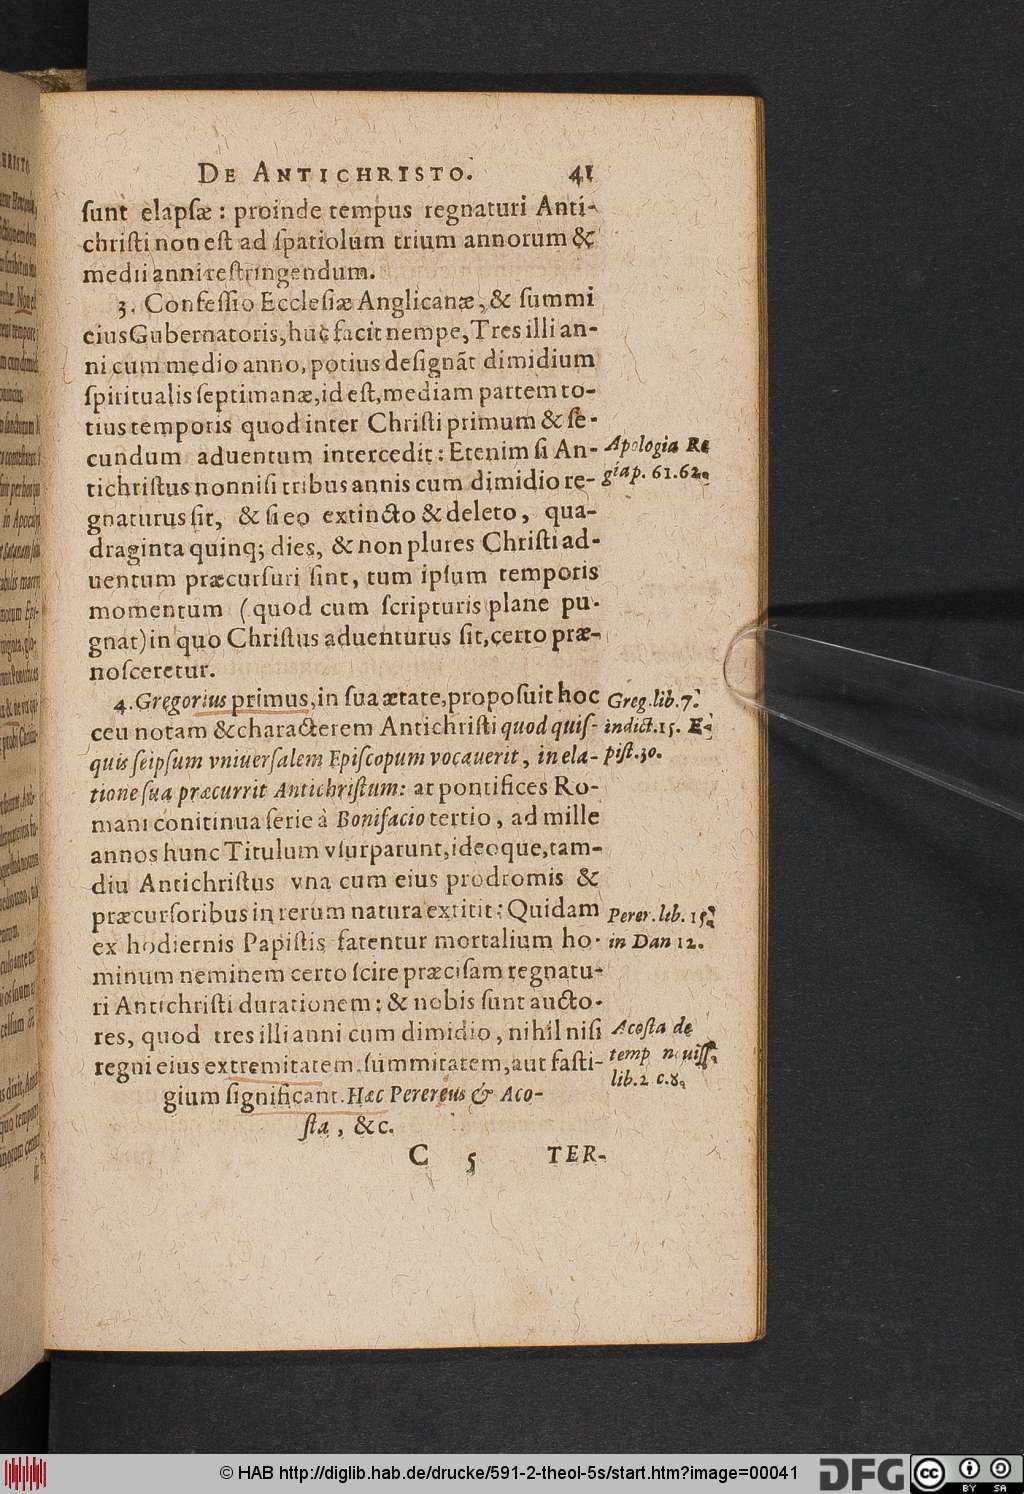 DE ANTICHRISTO. 41
ſunt elapſæ : proinde tempus regnaturi Anti-
chriſti non eſt ad ſpatiolum trium annorum &
medii anni reſtringendum.
3. Confeſſio Eccleſiæ Anglicanæ, & ſummi
eius Gubernatoris, huc facit nempe, Tres illi an-
ni cum medio anno, potius deſignãt dimidium
ſpiritualis ſeptimanæ, id eſt, mediam partem to-
tius temporis quod inter Chriſti primum & ſe-
cundum aduentum intercedit : Etenim ſi An-
Apologia Re
tichriſtus nonniſi tribus annis cum dimidio re-
giæ p. 61.62.
gnaturus ſit, & ſi eo extincto & deleto, qua-
draginta quinq; dies, & non plures Chriſti ad-
uentum præcurſuri ſint, tum ipſum temporis
momentum (quod cum ſcripturis plane pu-
gnat) in quo Chriſtus aduenturus ſit, certo præ-
noſceretur.
4. Gregorius primus, in ſua ætate, propoſuit hoc
Greg. lib. 7.
ceu notam & characterem Antichriſti quod quiſ-
indict. 15. E-
quis ſeipſum vniuerſalem Epiſcopum vocauerit, in ela-
piſt. 30.
tione ſua præcurrit Antichriſtum: at pontifices Ro-
mani conitinua ſerie à Bonifacio tertio, ad mille
annos hunc Titulum vſurparunt, ideoque, tam-
diu Antichriſtus vna cum eius prodromis &
præcurſoribus in rerum natura extitit : Quidam
Perer. lib. 15.
ex hodiernis Papiſtis fatentur mortalium ho-
in Dan 12.
minum neminem certo ſcire præciſam regnatu-
ri Antichriſti durationem : & nobis ſunt aucto-
res, quod tres illi anni cum dimidio, nihil niſi
Acoſta de
regni eius extremitatem, ſummitatem, aut faſti-
temp nouiſſ.
lib. 2 c. 8.
gium ſignificant. Hæc Perereus & Aco-
ſta, &c.
C 5 TER-
© HAB http://diglib.hab.de/drucke/591-2-theol-5s/start.htm?image=00041
DFG
cc BY SA